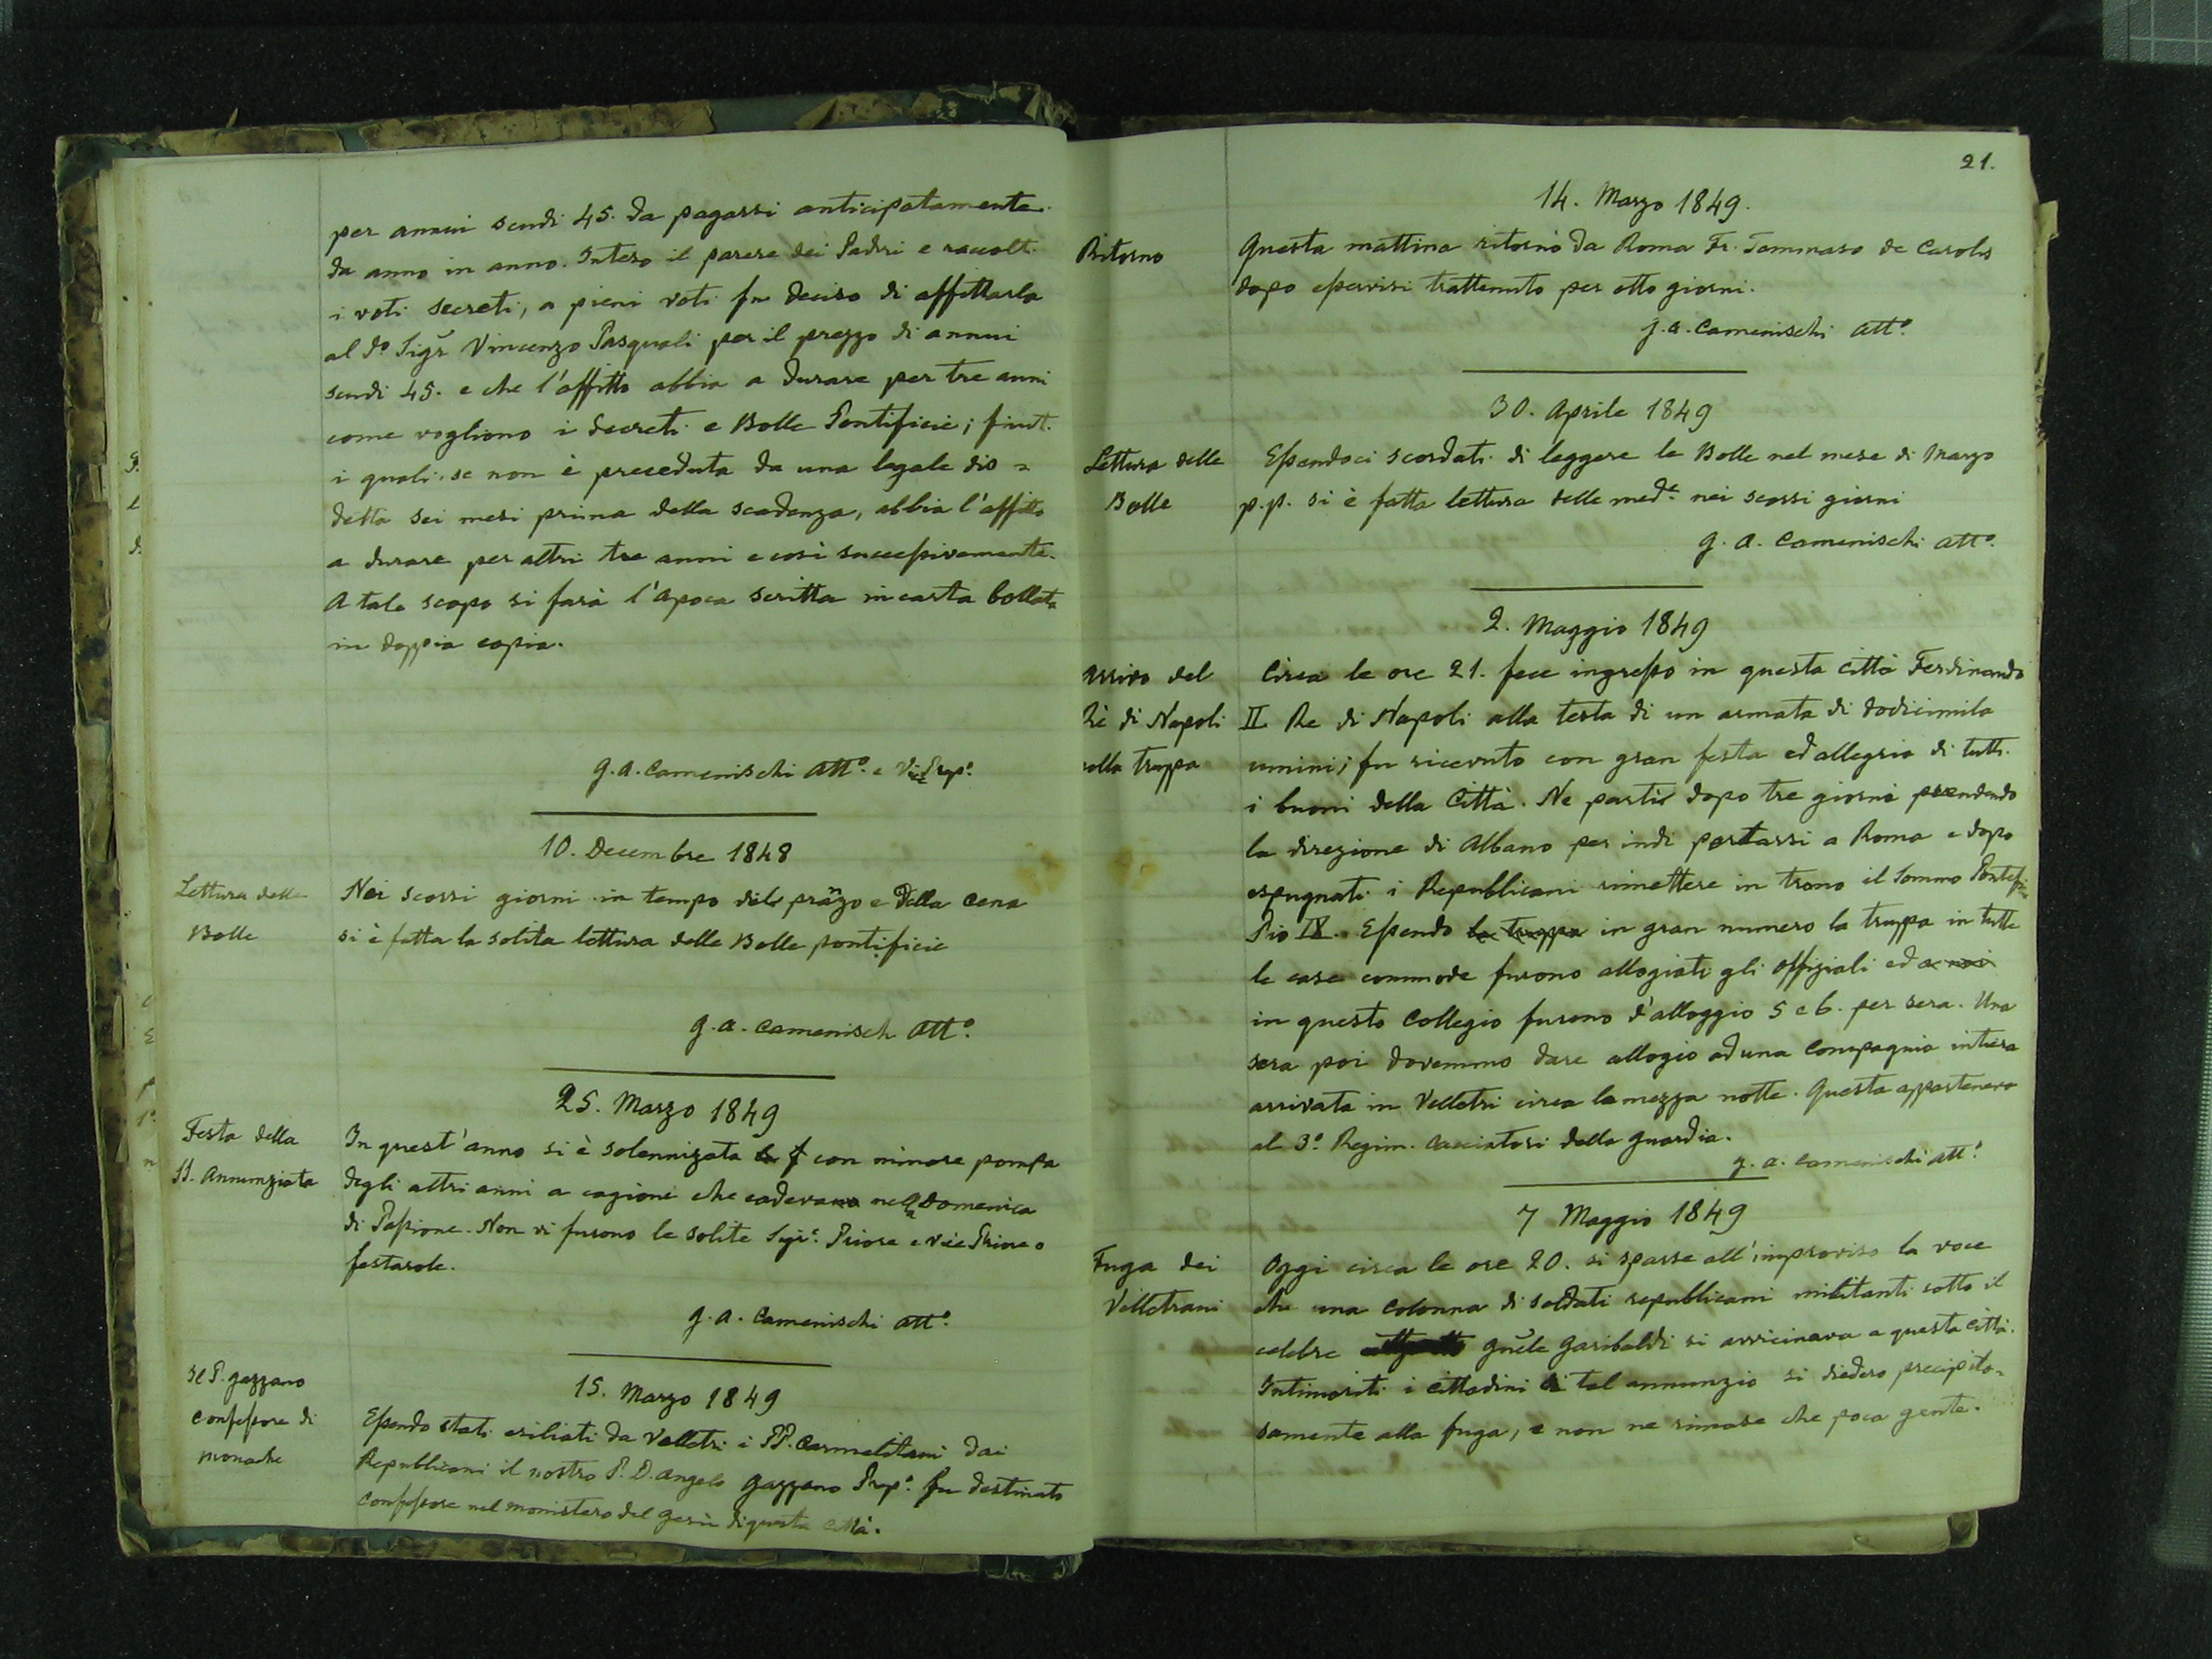 per annui scudi 45. da pagarsi anticipatamente
da anno in anno. Inteso il parere dei Padri e raccolti
i voti secreti, a pieni voti fu deciso di affittarla
al do Sigr Vincenzo Pasquali per il prezzo di annui
scudi 45. e che l'affitto abbia a durare per tre anni
come vogliono i decreti e Bolle Pontificie; finiti
i quali, se non è preceduta da una legale dis=
detta sei mesi prima della scadenza, abbia l'affitto
a durare per altri tre anni e così successivamente.
A tale scopo si farà l'apoca scritta in carta bollata
in doppia copia.
G. A. Camenischi Atto. e Vice Prepo.
10. Decembre 1848
Lettura delle
Bolle
Nei scorsi giorni in tempo del pranzo e della cena
si è fatta la solita lettura delle Bolle pontificie
G. A. Camenisch Atto.
25. Marzo 1849
Festa della
SS. Annunziata
In quest'anno si è solennizata la f con minore pompa
degli altri anni a cagione che cadevano nella Domenica
di Passione. Non vi furono le solite Sigre. Priore e Vice Priore o
festarole.
G. A. Camenischi Atto.
Il P. Gazzano
Confessore di
monache
15. Marzo 1849
Essendo stati esiliati da Velletri i PP. Carmelitani dai
Republicani il nostro P. D. Angelo Gazzano Prepo. fu destinato
Confessore nel monistero del Gesù di questa città.
21.
14. Marzo 1849.
Ritorno
Questa mattina ritornò da Roma Fr. Tommaso de Carolis
dopo essersi trattenuto per otto giorni.
G. A. Camenischi Atto.
30. Aprile 1849
Lettura delle
Bolle
Essendoci scordati di leggere le Bolle nel mese di Marzo
p.p. si è fatta lettura delle mede. nei scorsi giorni
G. A. Camenischi Atto.
2. Maggio 1849
Arrivo del
Rè di Napoli
colla truppa
Circa le ore 21. fece ingresso in questa città Ferdinando
II Re di Napoli alla testa di un armata di dodicimila
uomini; fu ricevuto con gran festa ed allegria di tutti
i buoni della Città. Ne partì dopo tre giorni prendendo
la direzione di Albano per indi portarsi a Roma e dopo
espugnati i Republicani rimettere in trono il Sommo Pontefice
Pio IX. Essendo la truppa in gran numero la truppa in tutte
le case commode furono allogiati gli offiziali ed a noi
in questo Collegio furono d'alloggio 5 e 6. per sera. Una
sera poi dovemmo dare allogio ad una Compagnia intiera
arrivata in Velletri circa la mezza notte. Questa apparteneva
al 3o. Regim. Cacciatori della Guardia.
G. A. Camenischi Atto.
7 Maggio 1849
Fuga dei
Velletrani
Oggi circa le ore 20. si sparse all'improviso la voce
che una colonna di soldati republicani militanti sotto il
celebre Gnle Garibaldi si avvicinava a questa città.
Intimoriti i cittadini di tal annunzio si diedero precipito=
samente alla fuga, e non ne rimase che poca gente.